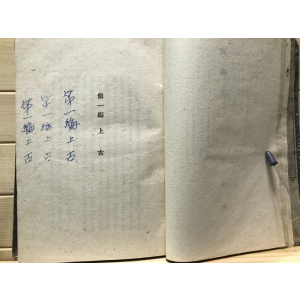 第一編上古
第一編上古
第一編上古
第一編上古